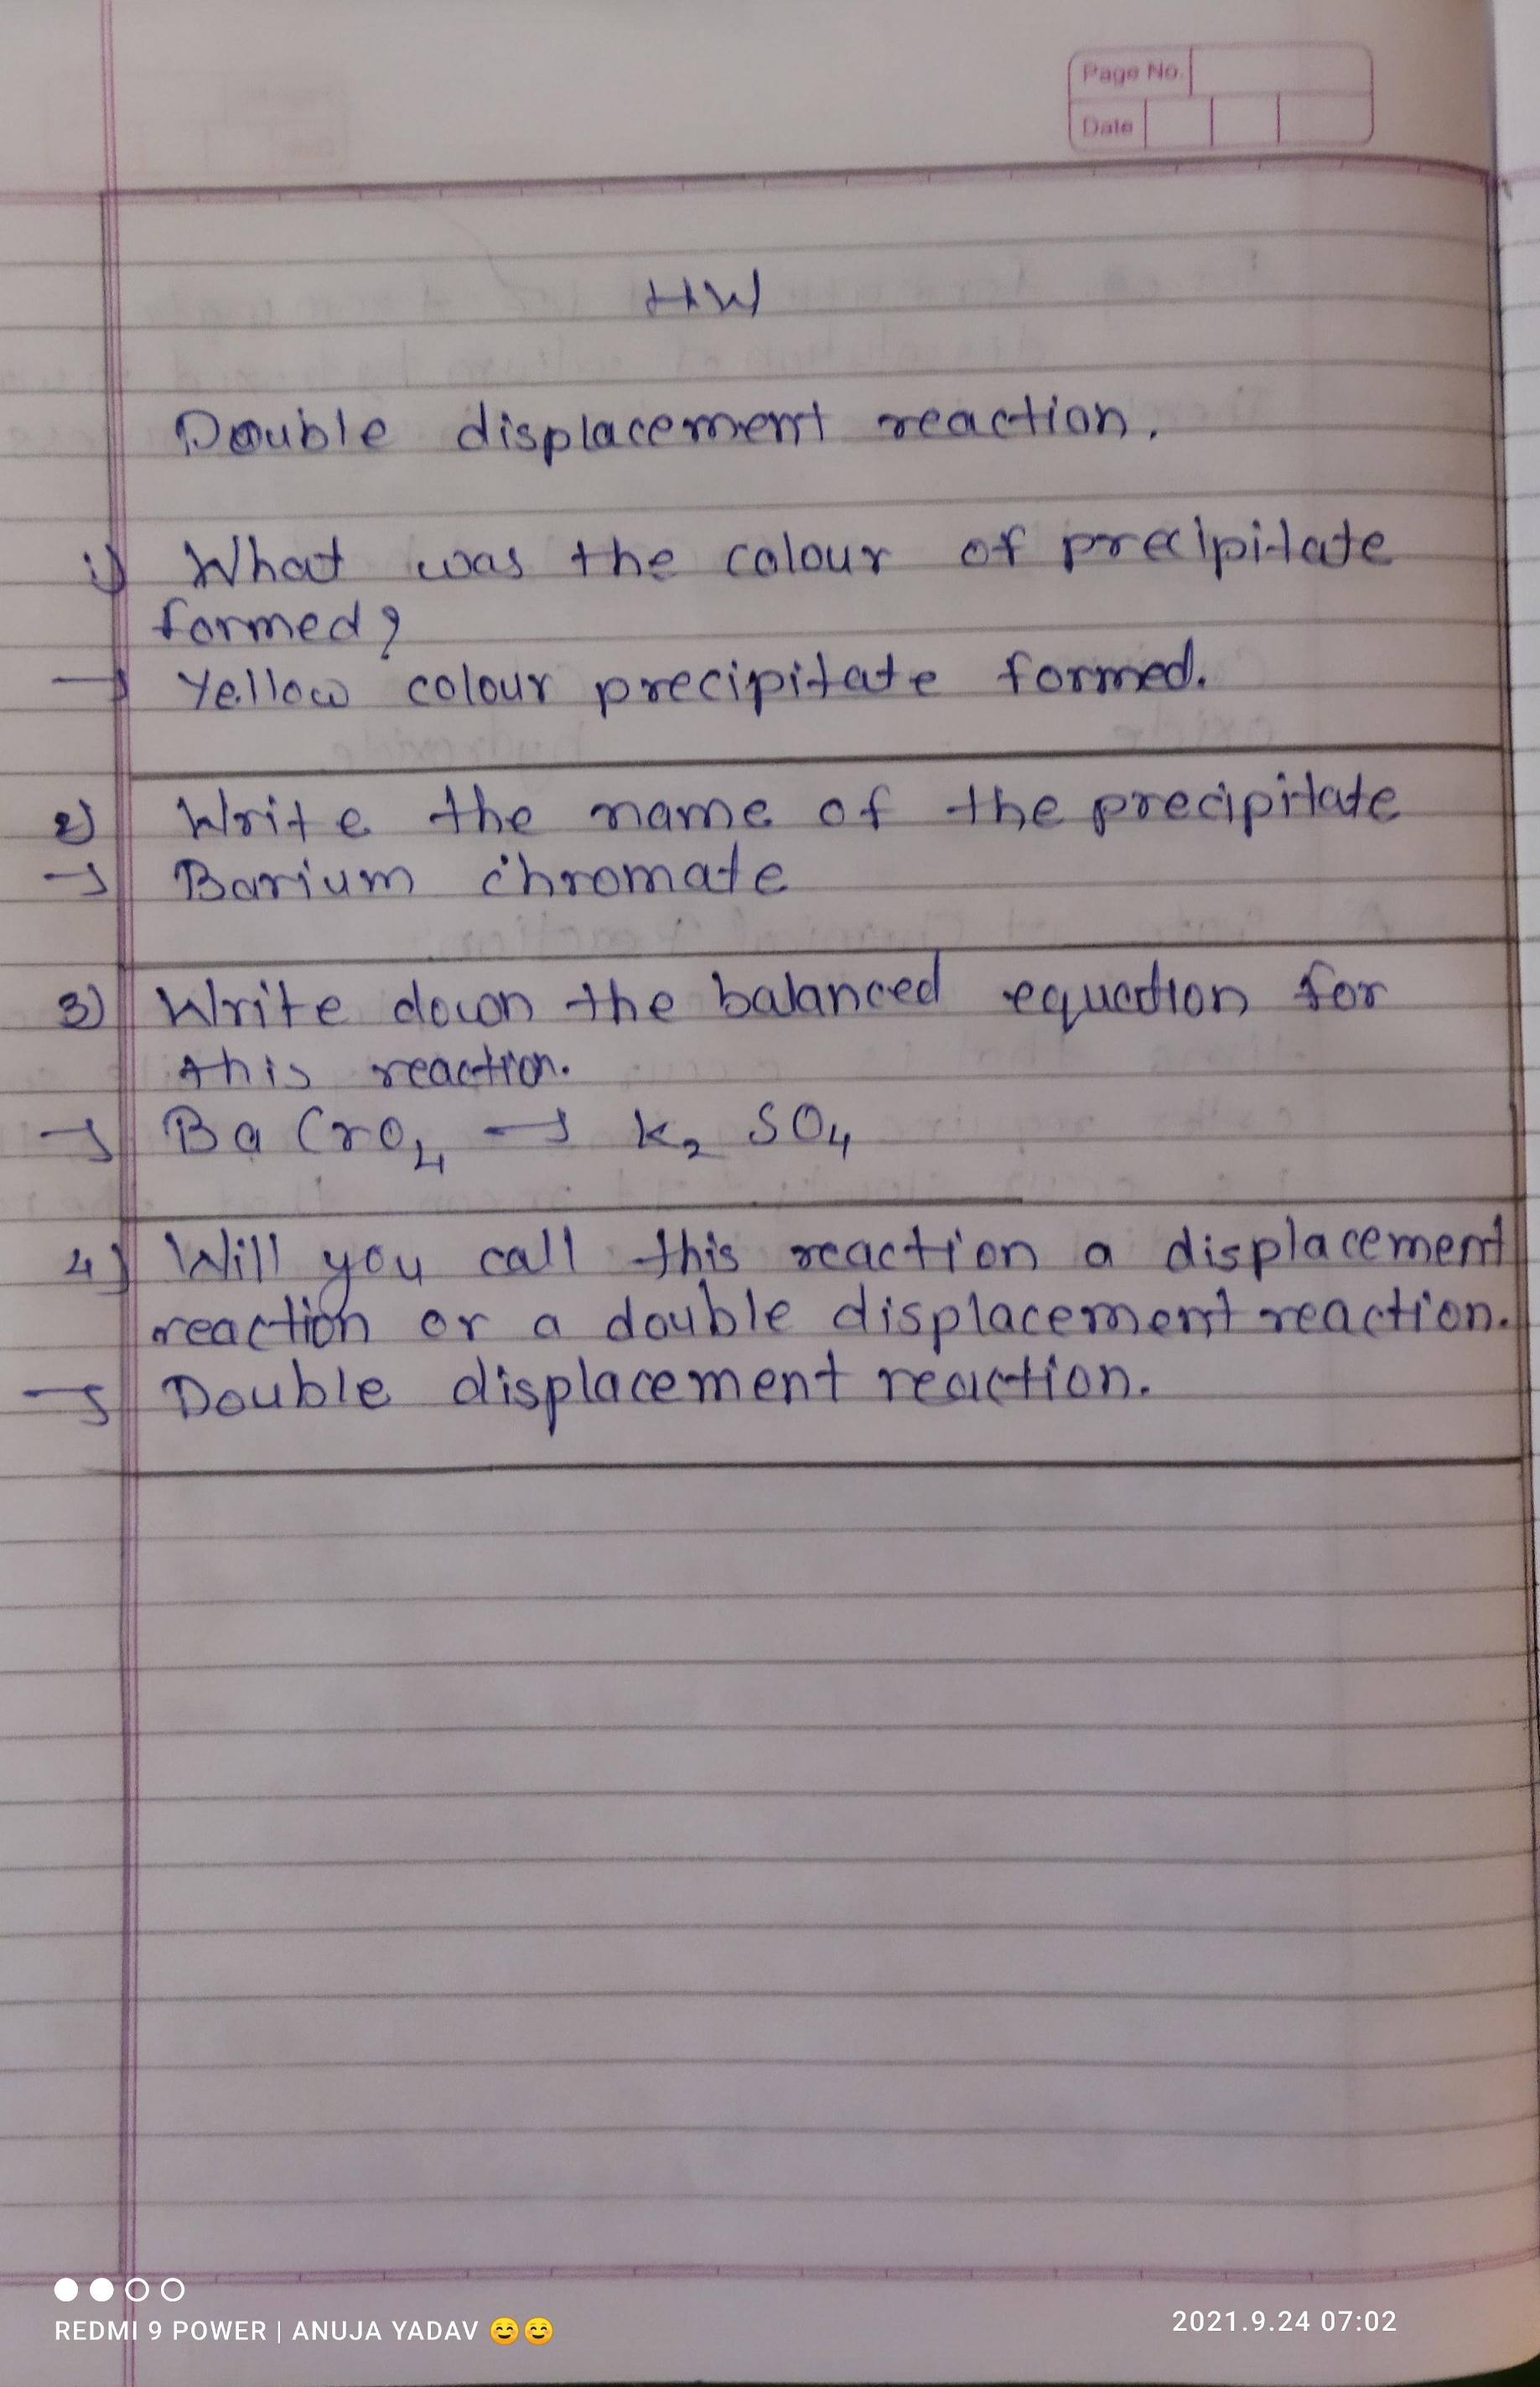 Page No.
Date
HW
Double displacement reaction.
1) What was the colour of precipitate
formed?
→ Yellow colour precipitate formed.
2) Write the name of the precipitate
→ Barium chromate
3) Write down the balanced equation for
this reaction.
→ Ba CrO₄ → K₂ SO₄
4) Will you call this reaction a displacement
reaction or a double displacement reaction.
→ Double displacement reaction.
REDMI 9 POWER | ANUJA YADAV 😊😊
2021.9.24 07:02